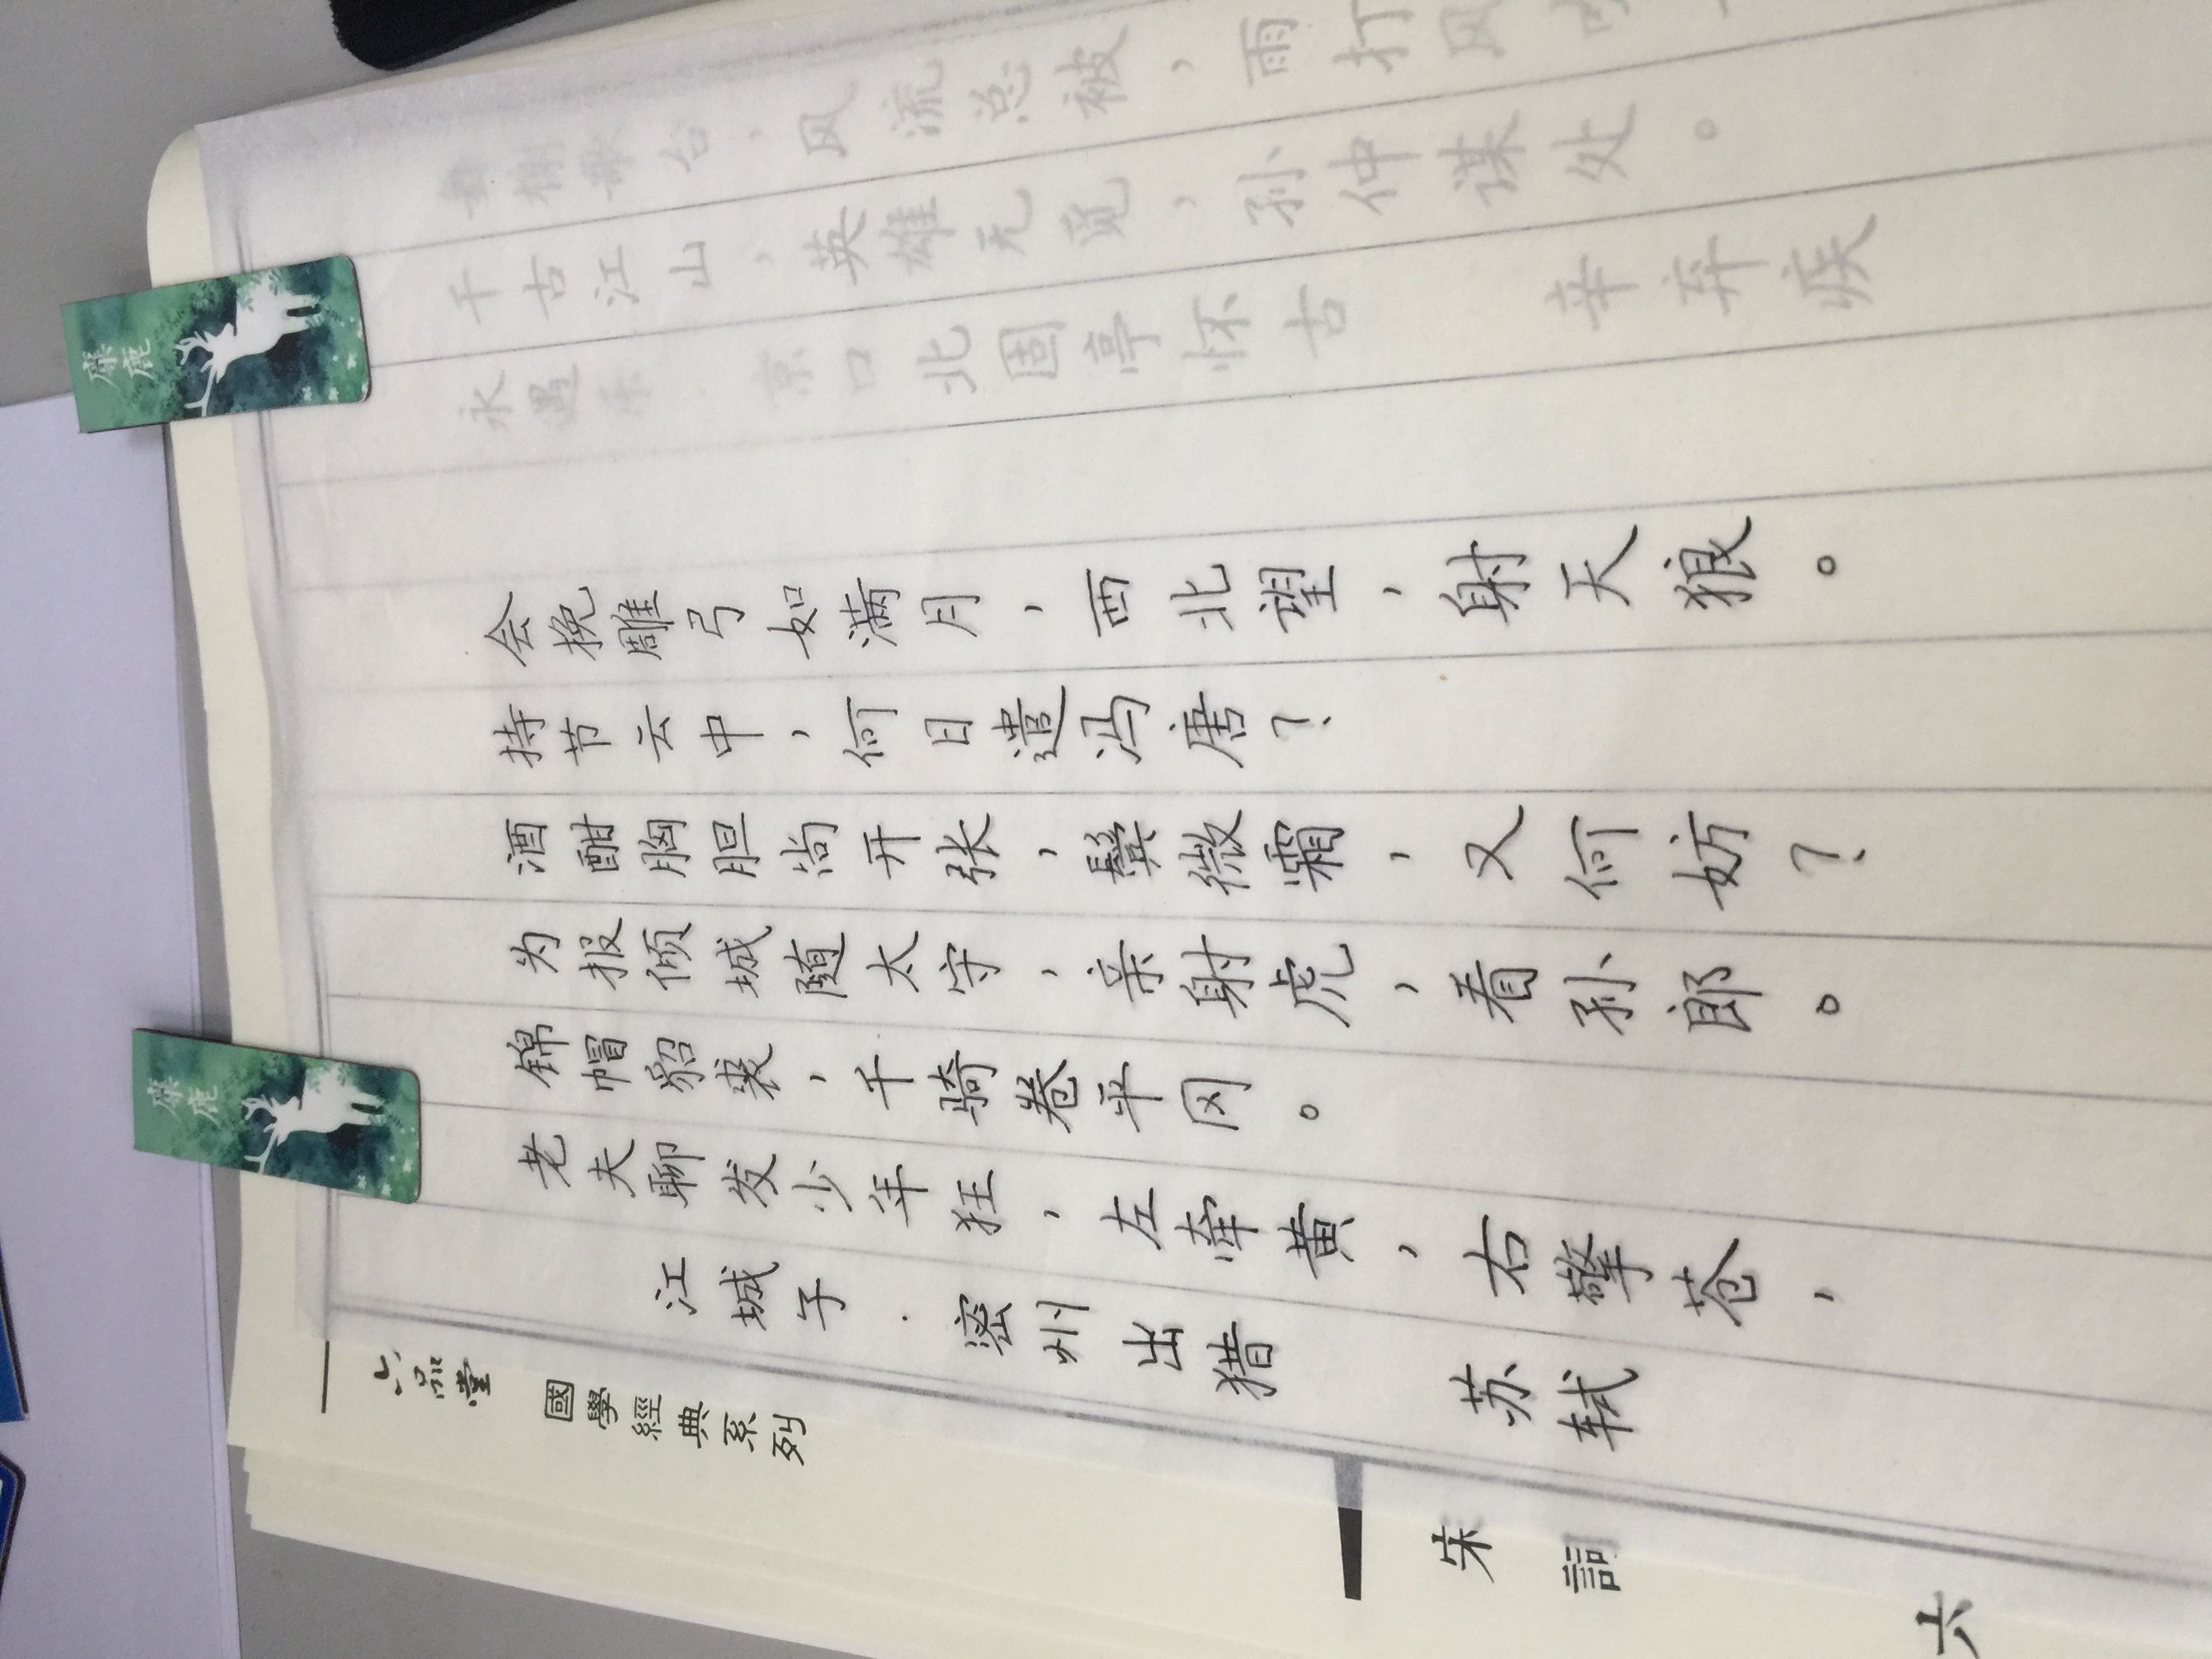 麋鹿
麋鹿
六品堂 國學經典系列
宋詞
六
江城子·密州出猎 苏轼
老夫聊发少年狂，左牵黄，右擎苍，
锦帽貂裘，千骑卷平冈。
为报倾城随太守，亲射虎，看孙郎。
酒酣胸胆尚开张，鬓微霜，又何妨？
持节云中，何日遣冯唐？
会挽雕弓如满月，西北望，射天狼。
永遇乐·京口北固亭怀古 辛弃疾
千古江山，英雄无觅，孙仲谋处。
舞榭歌台，风流总被，雨打风吹